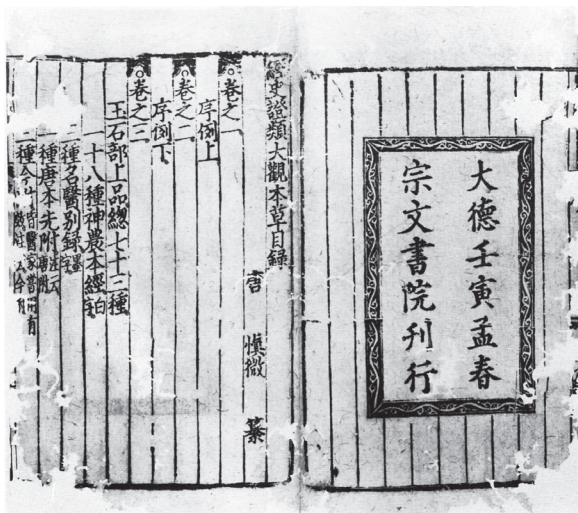 大德壬寅孟春
宗文書院刊行
經史證類大觀本草目錄
唐 慎微 纂
卷之一
序例上
卷之二
序例下
卷之三
玉石部上品總七十三種
一十八種神農本經白字
三種名醫別錄墨字
一種唐本先附注云唐附
皆醫家嘗用有